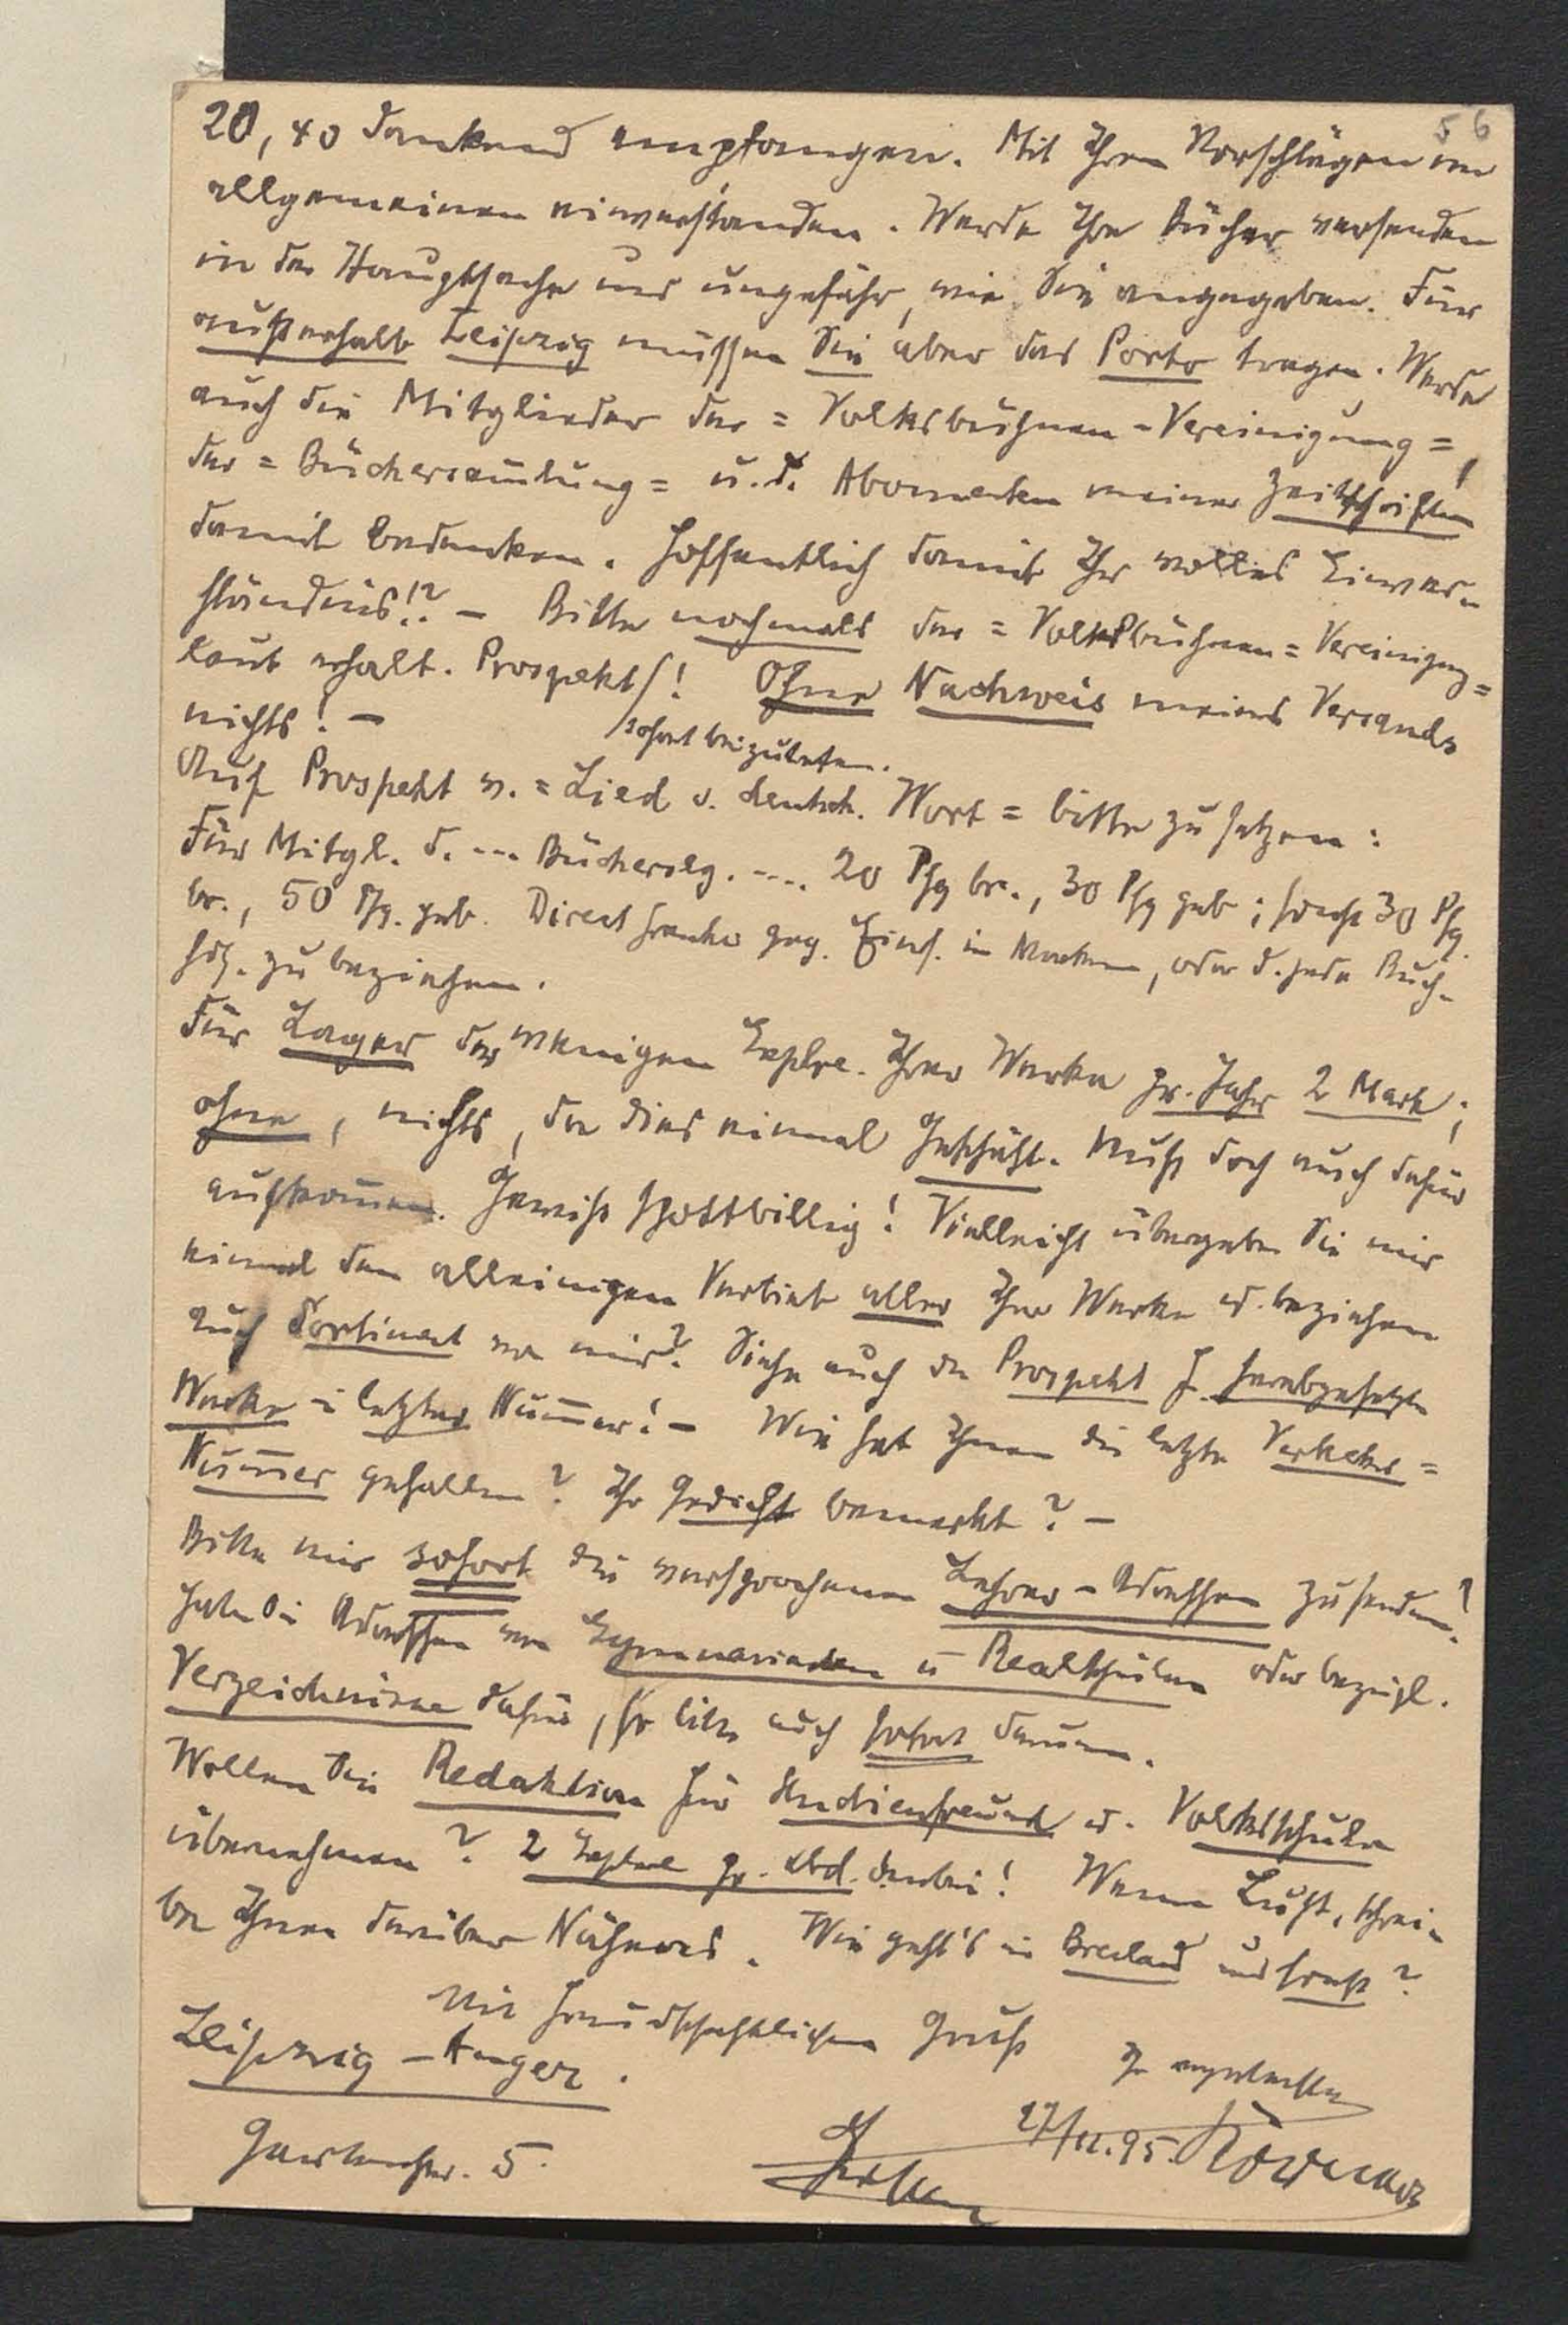 56
20,40 dankend empfangen. Mit Ihren Vorschlägen im
allgemeinen einverstanden. Werde Ihre Bücher versenden
in der Hauptsache und ungefähr, wie Sie angegeben. Für
außerhalb Leipzig müssen Sie aber das Porto tragen. Werde
auch die Mitglieder der = Volksbühnen-Vereinigung =,
der = Büchersam̅lung = u. d. Abonnenten meiner Zeitschriften
damit bedenken. Hoffentlich damit Ihr volles Einver-
ständnis!? – Bitte nochmals der = Volksbühnen = Vereinigung =
laut erhalt. Prospekt/! Ohne Nachweis meines Versands
nichts! –
/sofort beizutreten.
Auf Prospekt v. = Lied v. deutsch. Wort = bitte zu setzen:
Für Mitgl. d. --- Bücherslg. ---- 20 Pfg br., 30 Pfg geb; sonst 30 Pfg.
br., 50 Pfg. geb. Direct franko geg. Eins. in Marken, oder d. jede Buch-
hdg. zu beziehen.
Für Lager der wenigen Explre. Ihrer Werke pr. Jahr 2 Mark;
ohne, nichts, da dies einmal Geschäft. Muß doch auch dafür
aufkom̅en. Gewiß spottbillig! Vielleicht übergeben Sie mir
einmal den alleinigen Vertrieb aller Ihrer Werke u. beziehen
auch Sortiment von mir? Siehe auch den Prospekt f. herabgesetzte
Werke i letzter Num̅er! – Wie hat Ihnen die letzte Verkehrs =
Num̅er gefallen? Ihr Gedicht bemerkt? –
Bitte mir sofort die versprochenen Lehrer-Adressen zu senden!
Haben Sie Adressen von Gymnasiasten u Realschülern oder bezügl.
Verzeichnisse dafür, so bitte auch sofort darum.
Wollen Sie Redaktion für Studienfreund u. Volksschule
übernehmen? 2 Explre pr. Abd. dabei! Wenn Lust, schrei-
be Ihnen darüber Näheres. Wie geht's in Breslau und sonst?
Mit freundschaftlichem Gruß
Leipzig – Anger.
Ihr ergebenster
Gartenstr. 5.
27/12.95.